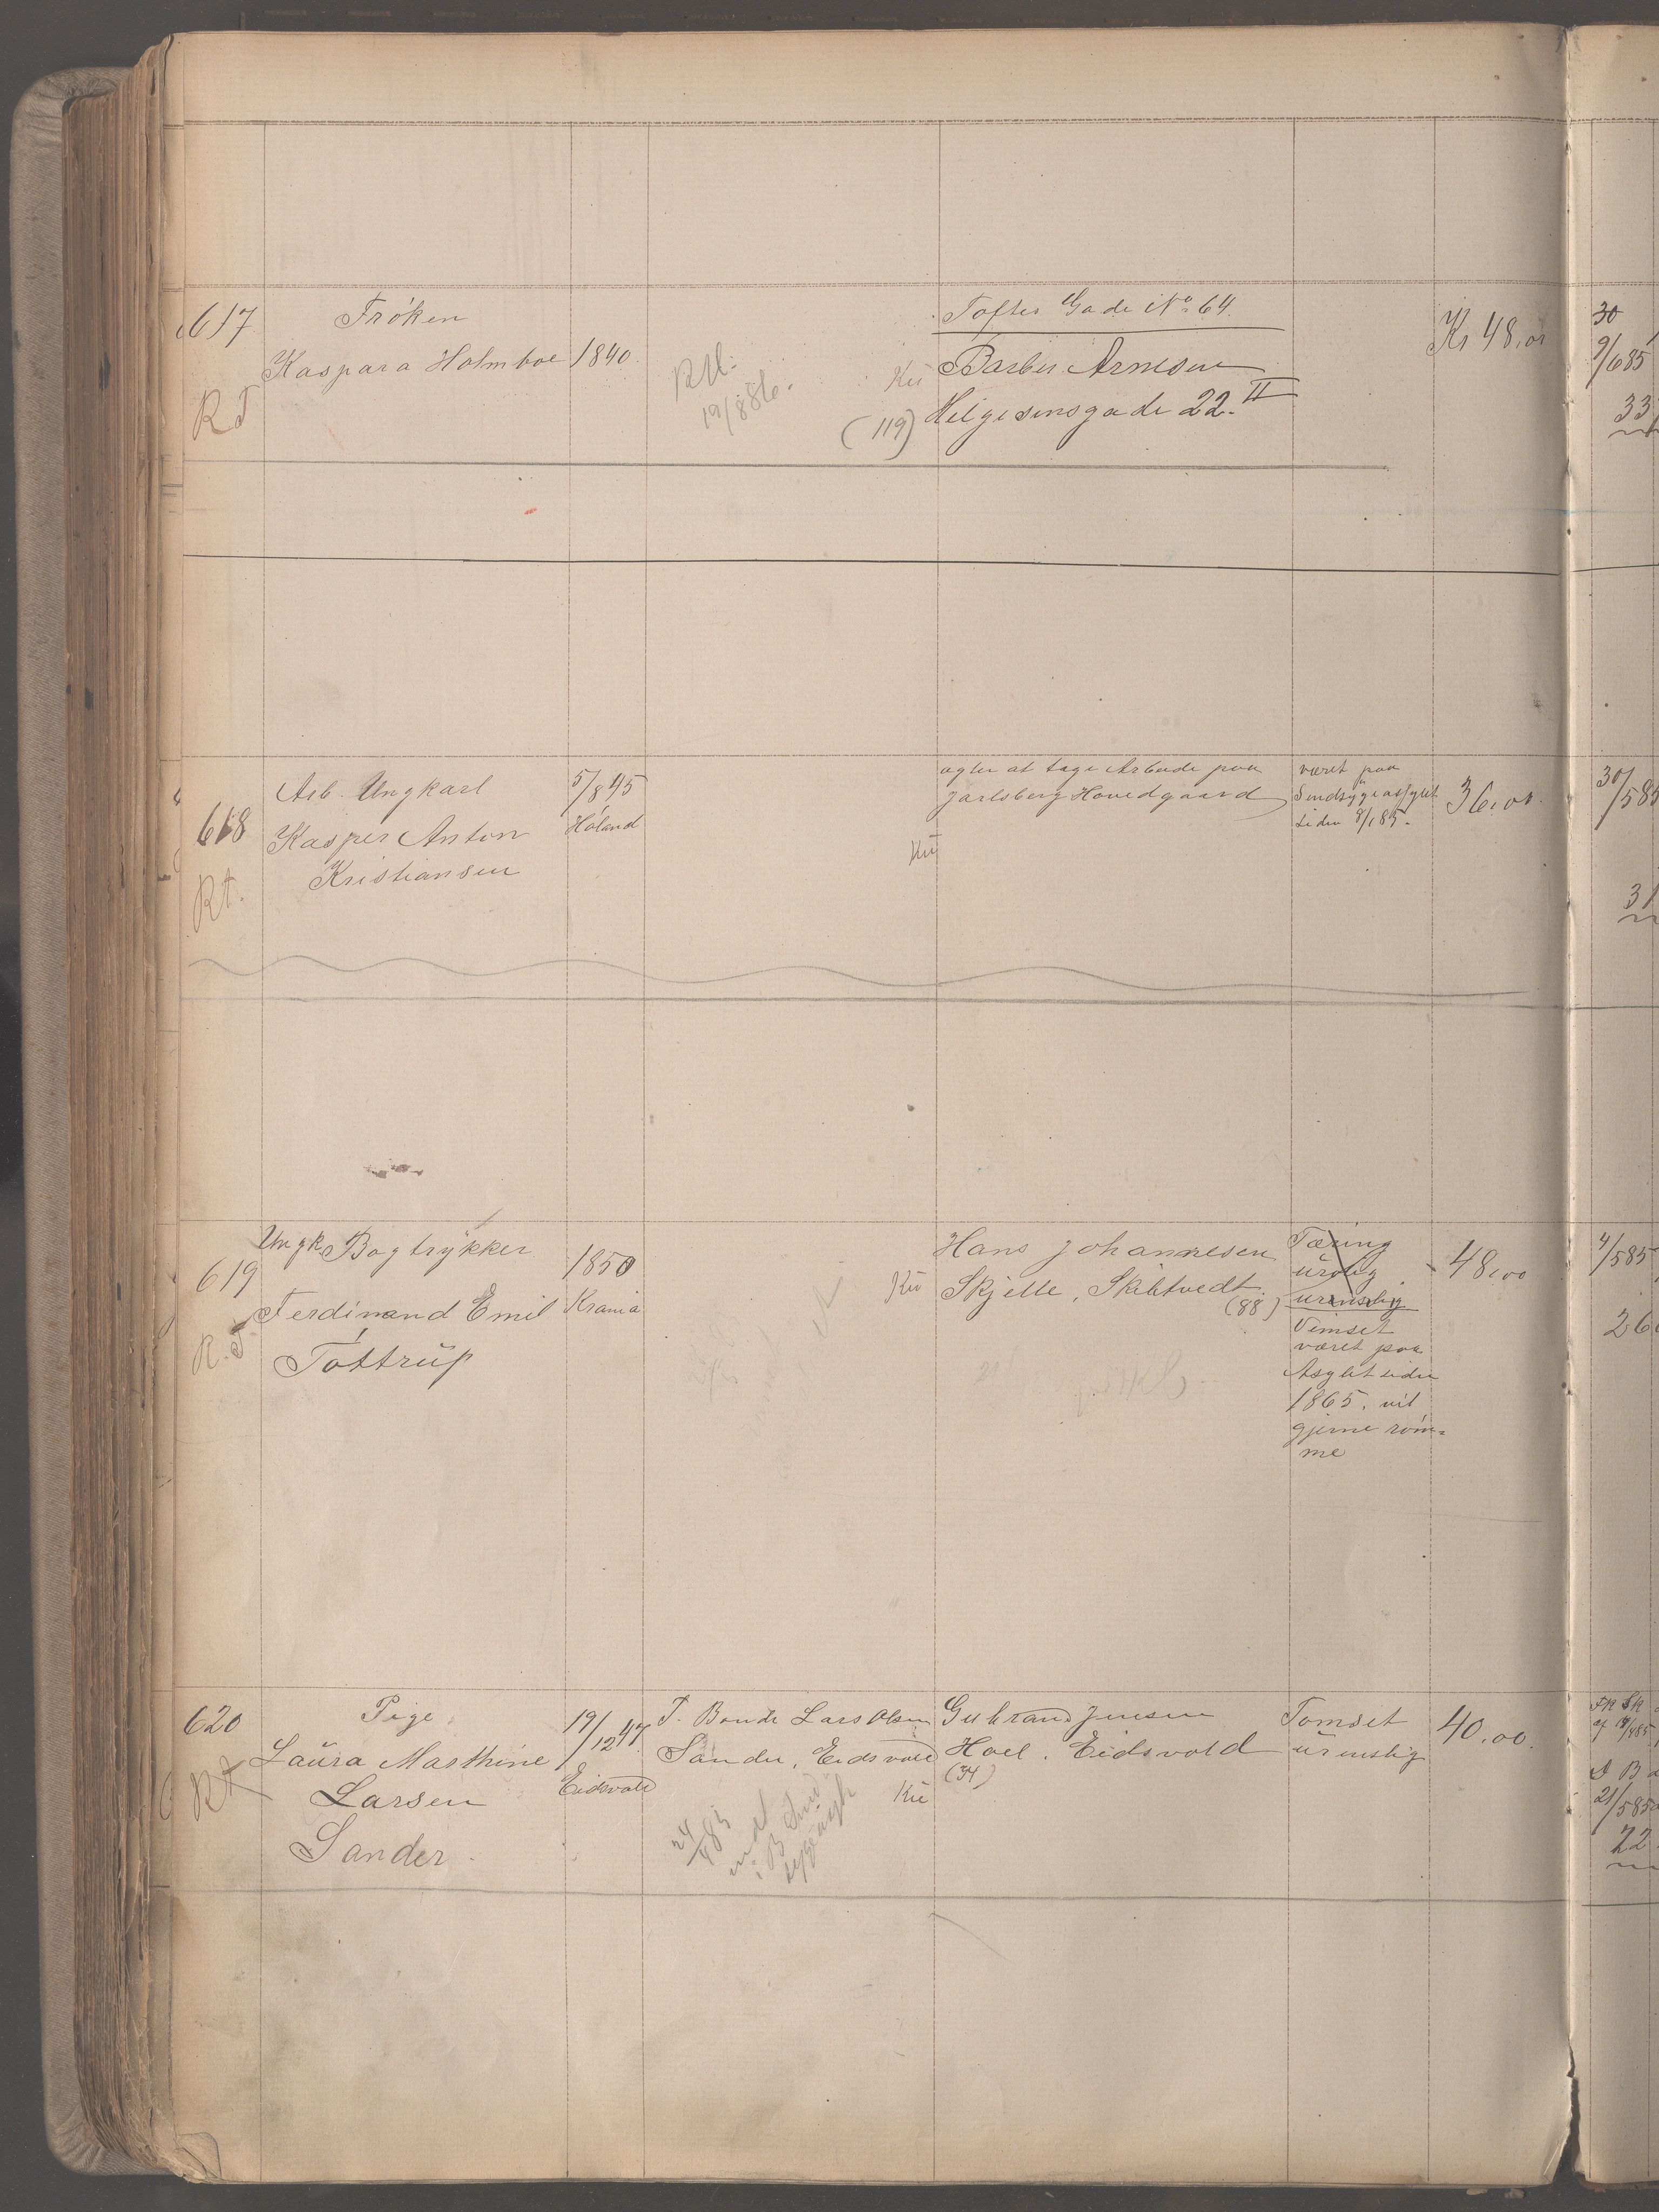 617
Frøken
Kaspara Holmboe
1840
R T
19/886.
Kri
(119)
Toftes Gade No 64
Barber Arnesen
Helgesensgade 22. II
Kr 48,00
30
9/685
33
618
Arb. Ungkarl
Kasper Anton
Kristiansen
5/845
Høland
Rt.
Kri
agter at tage Arbeide paa
Jarlsberg Hovedgaard
været paa
Sindsygeasylet
siden 8/185.
36,00
30/585
31
619
Ungk Bogtrykker
Ferdinand Emil
Tottrup
1850
Krania
R.T
Kri
Hans Johannesen
Skjelle, Skibtvedt
(88)
Tæring
urolig
urenslig
Vimset
været paa
Asylet siden
1865. vil
gjerne røm=
me
48,00
4/585
26
620
Pige
Laura Marthine
Larsen
Sander
19/1247
Eidsvold
Rt
F. Bonde Lars Olsen
Sander, Eidsvold
Kri
Gulbrand Jensen
Hoel. Eidsvold
(34)
Tomset
urenslig
40,00
21/585
22